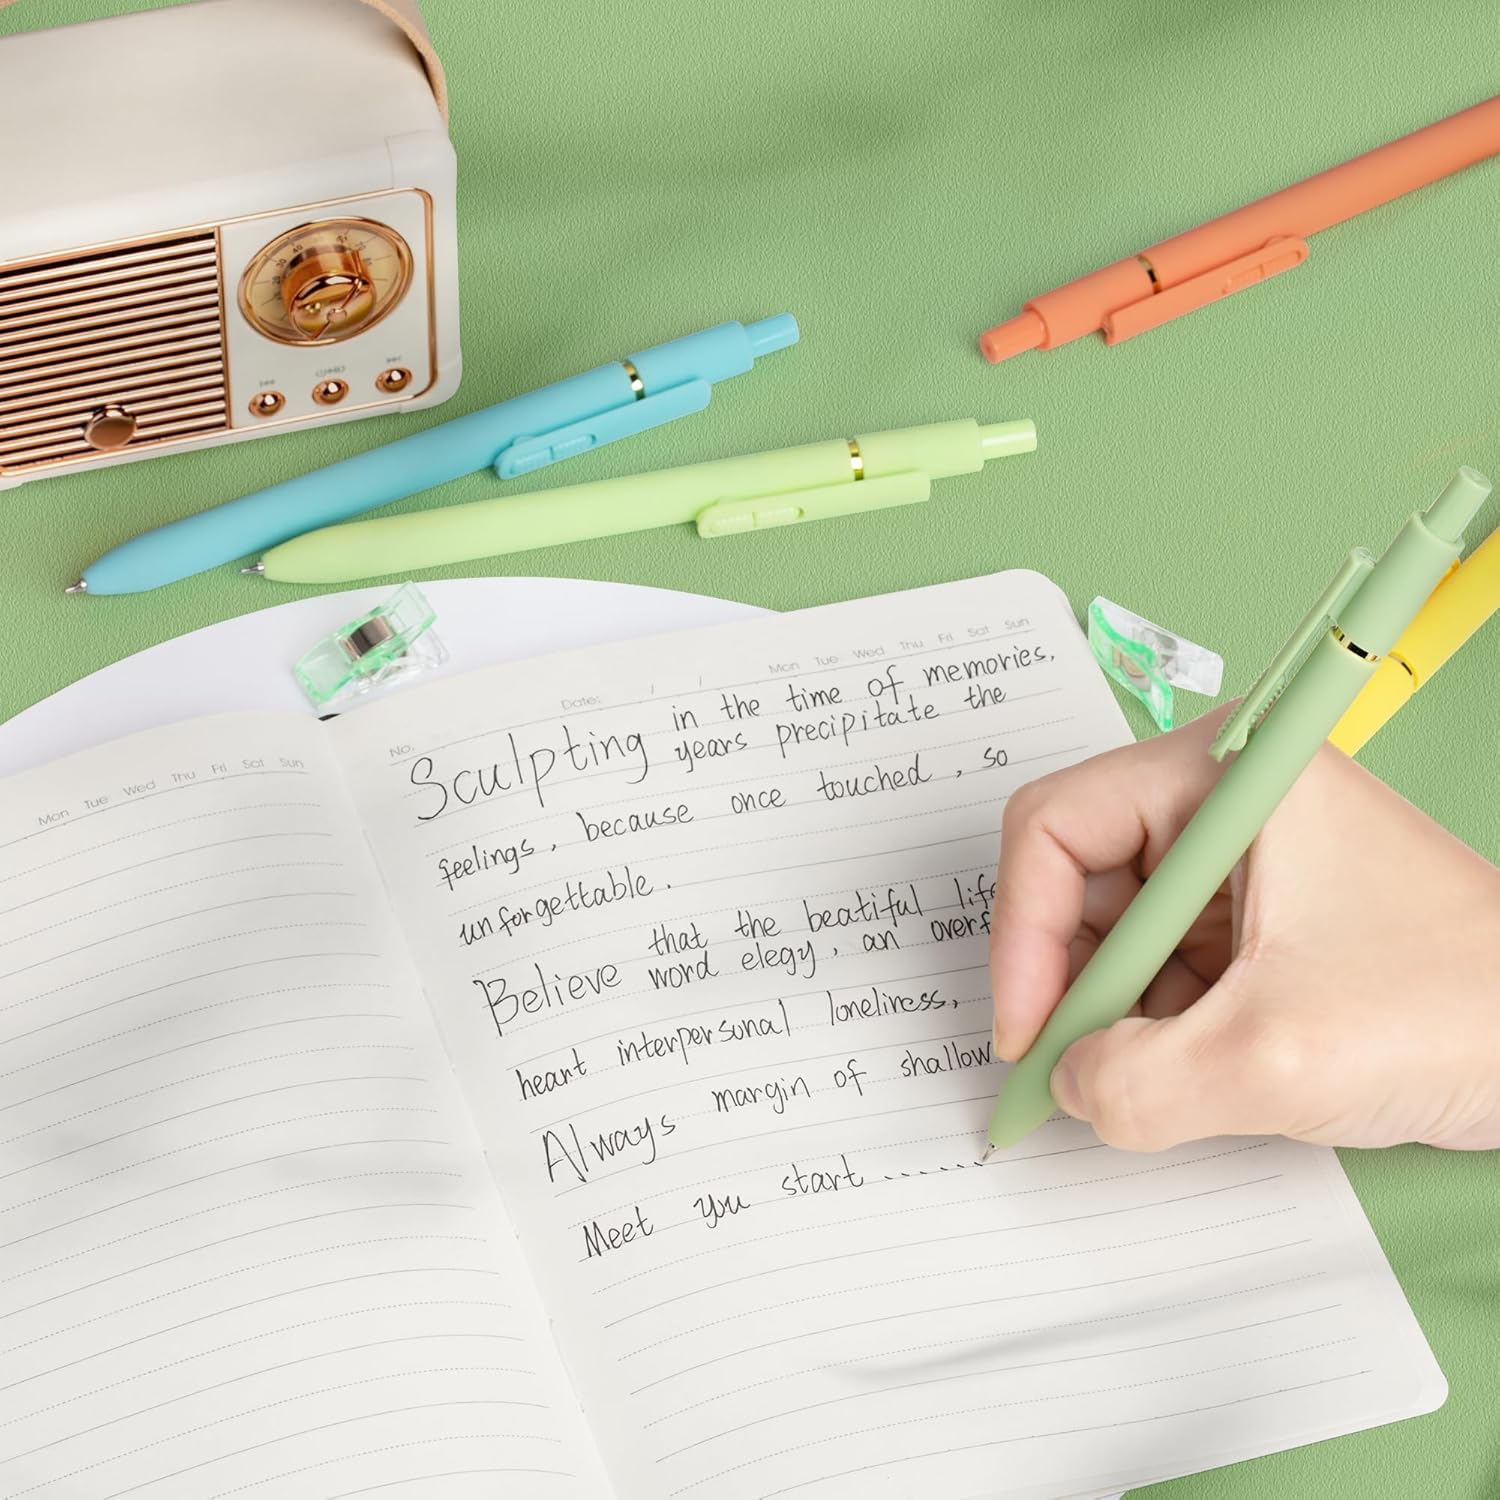 Mon Tue Wed Thu Fri Sat Sun
No. Date: / / Mon Tue Wed Thu Fri Sat Sun
Sculpting in the time of memories,
years precipitate the
feelings, because once touched, so
unforgettable.
Believe that the beatiful life
word elegy, an overf
heart interpersonal loneliness,
Always margin of shallow
Meet you start ......